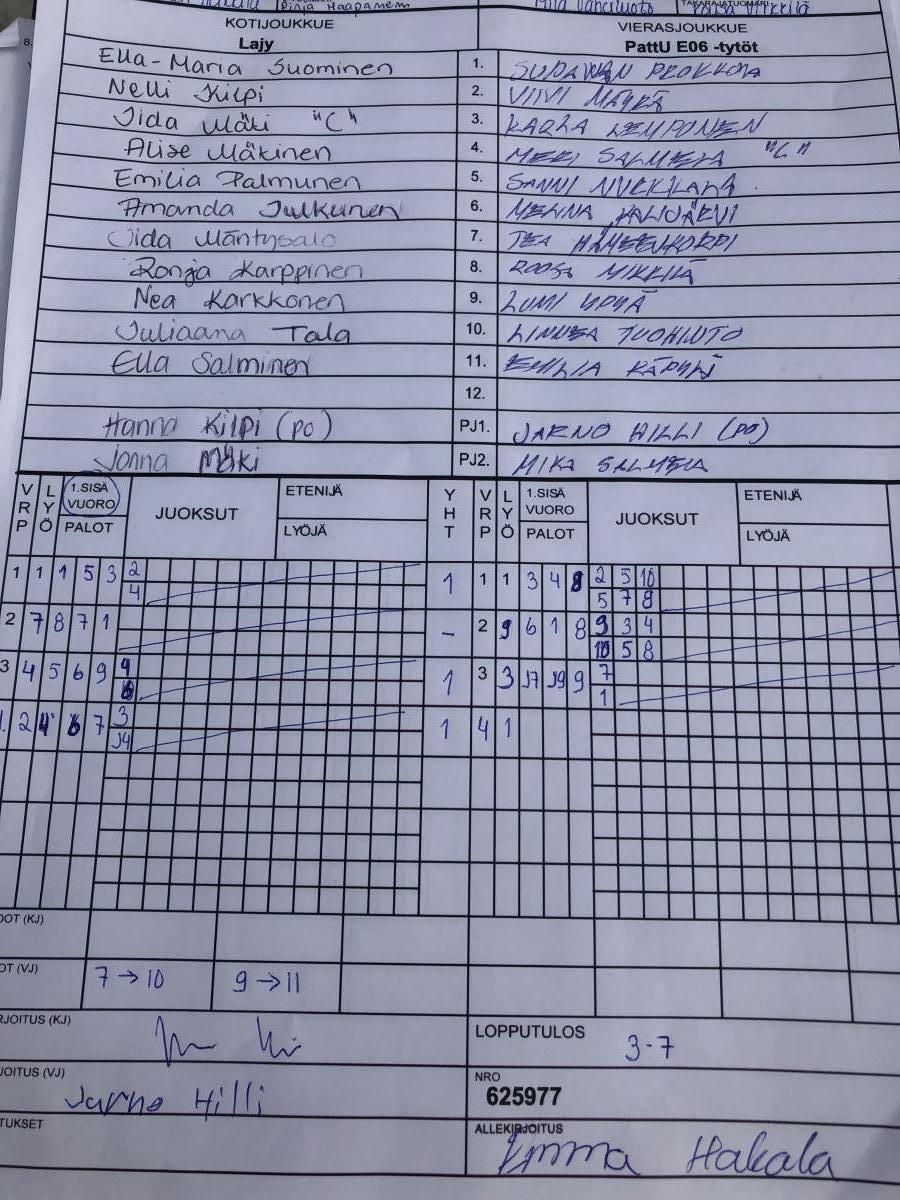 Pinja Haapaniemi
KOTIJOUKKUE VIERASJOUKKUE
Lajy PattU E06 -tytöt
Ella-Maria Suominen 1.
Nelli Kilpi 2. VIIVI
Iida Mäki "C" 3. KARLA LEMPONEN
Alise Mäkinen 4. MERI SALMELA "C"
Emilia Palmunen 5. SANNI
Amanda Julkunen 6. MELINA
Iida Mäntysalo 7. TEA HÄMEENKORPI
Ronja Karppinen 8. ROOSA MIKKILÄ
Nea Karkkonen 9. LUMI
Juliaana Tala 10. LINNEA TUOHINTO
Ella Salminen 11. EMILIA
12.
Hanna Kilpi (PO) PJ1. JARNO HILLI (PO)
Jonna Mäki PJ2. MIKA SALMELA
VRP LYÖ 1.SISÄ VUORO PALOT JUOKSUT ETENIJÄ LYÖJÄ YHT VRP LYÖ 1.SISÄ VUORO PALOT JUOKSUT ETENIJÄ LYÖJÄ
1 1 1 5 3 2 1 1 1 3 4 8 2 5 10
4 5 7 8
2 7 8 7 1 – 2 9 6 1 8 9 3 4
10 5 8
3 4 5 6 9 9 1 3 3 J7 J9 9 7
6 1
2 4 6 7 3 1 4 1
J4
OT (VJ) 7 → 10 9 → 11
RJOITUS (KJ) LOPPUTULOS 3-7
JOITUS (VJ) Jarno Hilli NRO
625977
TUKSET ALLEKIRJOITUS
Emma Hakala